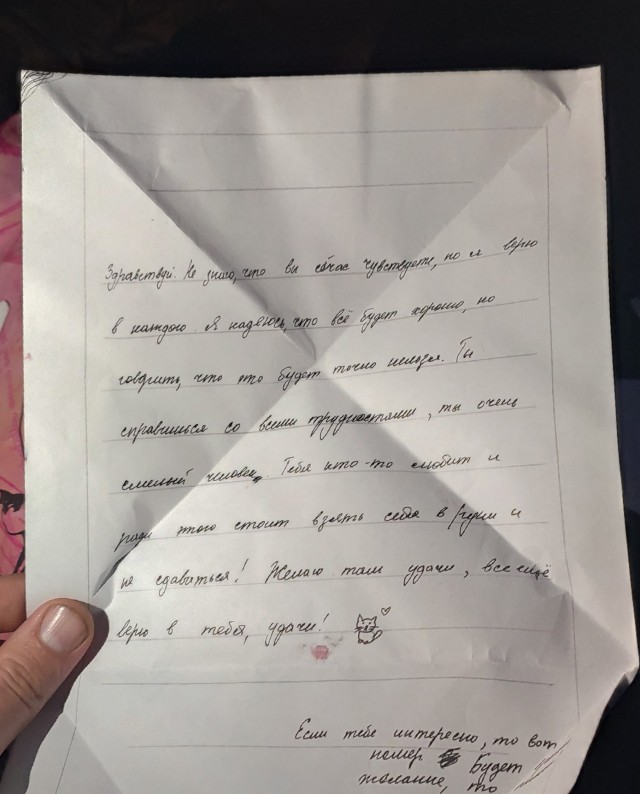 Здравствуй. Не знаю, что вы сейчас чувствуете, но я верю
в каждого. Я надеюсь, что всё будет хорошо, но
говорить, что это будет точно нельзя. Ты
справишься со всеми трудностями, ты очень
смелый человек. Тебя кто-то любит и
ради этого стоит взять себя в руки и
не сдаваться! Желаю там удачи, все ещё
верю в тебя, удачи!
Если тебе интересно, то вот
номер Будет
желание, то